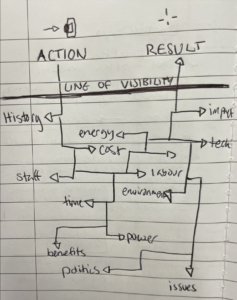 ACTION
RESULT
LINE OF VISIBILITY
History
impact
energy
cost
tech
staff
labour
environment
time
power
benefits
politics
issues